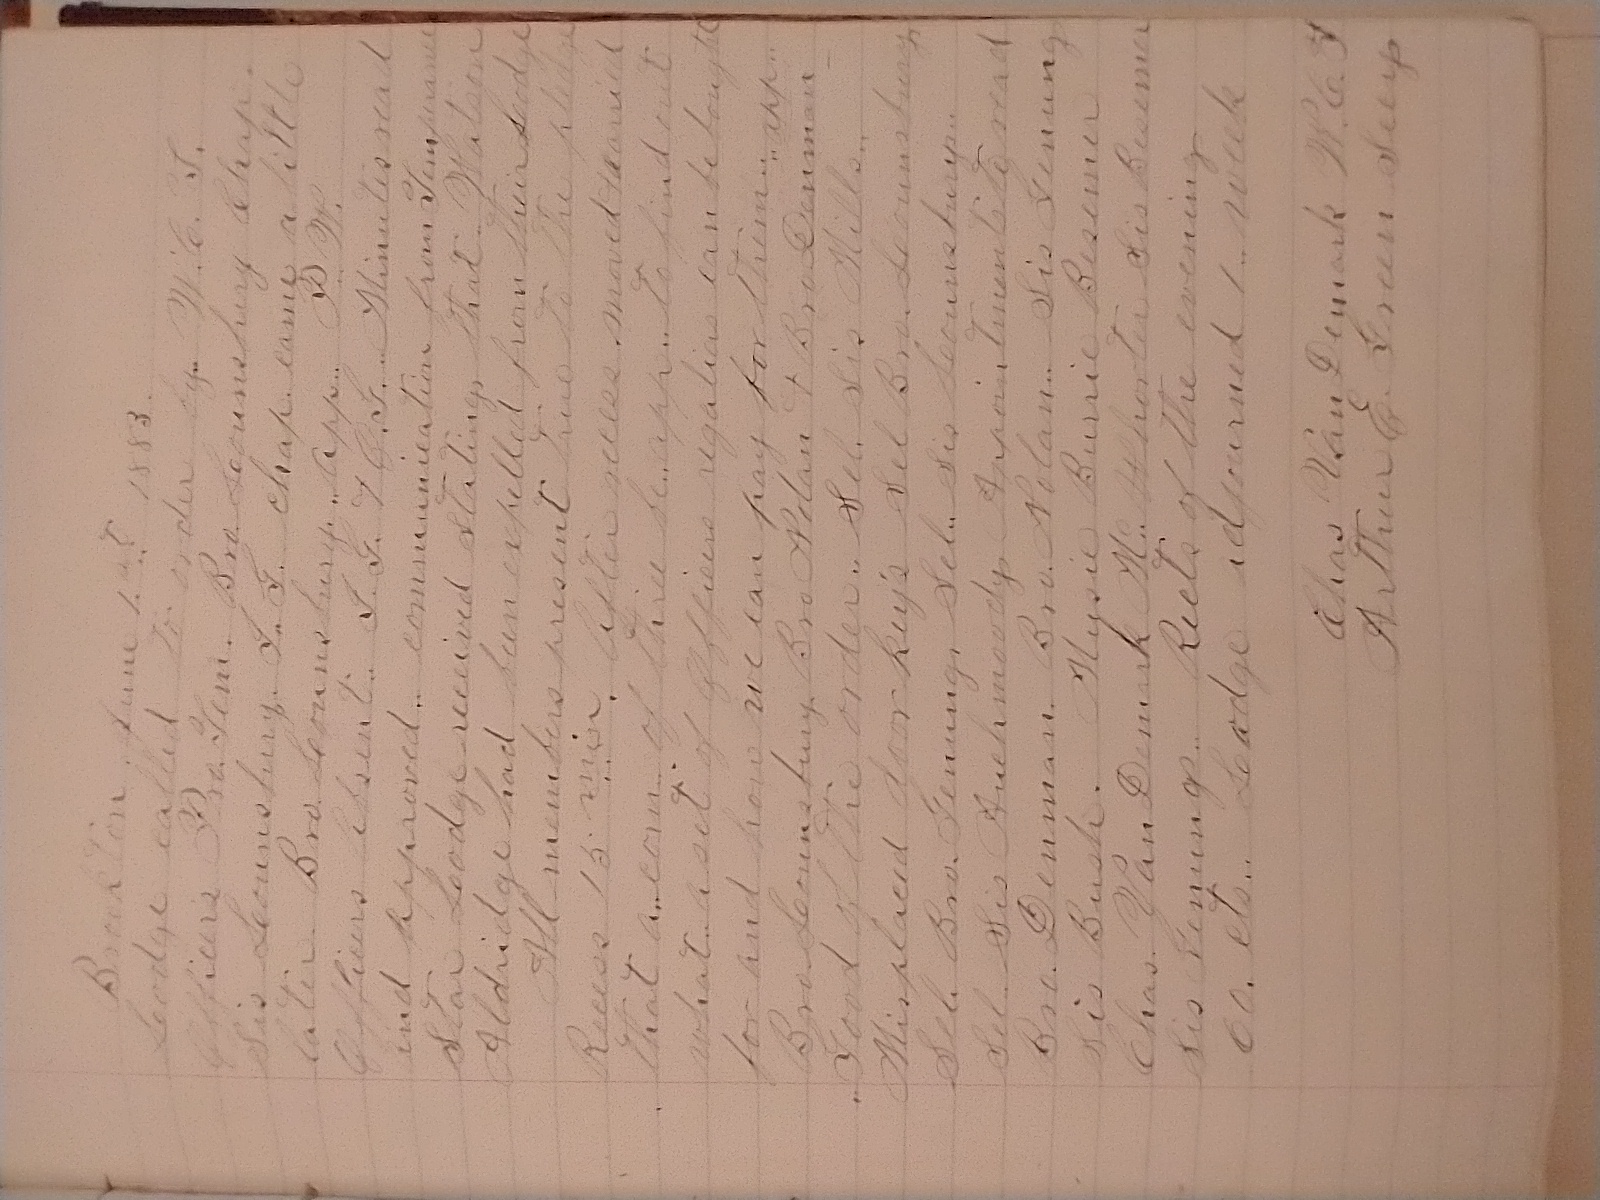 Brookton. June 1.st 1883.
Lodge called to order by.. W.C.T.
Officers Pro. Tem. Bro. Lounsbury Chap.
Sis Lounsbury. I.G. chap. came a little
later. Bro. Lounsbury.. app.. P.W.
Officers Absent.. I.G. & O.G... Minutes read
and approved.. communication from Temperance
Star Lodge received stating, that.. Watson
Aldridge had been expelled from their Lodge
All members present true to the pledge
Recess 15 min.. After recess. moved & carried
that a..com.. of three be..app.. to find out
what..a set of Officers regalias can be bought
for and how we can pay for them....app..
Bro. Lounsbury Bro Nolan & Bro. Denman
..Good of the order.. Sel. Sis Mills..
Misplaced door key's Sel Bro. Lounsbury
Sel. Bro. Genung, Sel.. Sis Lounsbury..
Sel. Sis Auchmoody Appointments to read
Bro. Denman. Bro. Nolan.. Sis Genung
Sis Bush. Music Burrie Besemer
Chas. Van Demark Mc. Whorter Sis Besemer
Sis Genung.. Rects of the evening
60. cts.. Lodge adjourned 1.. week
Chas Van Demark W.C.T
Arthur E. Green Secy